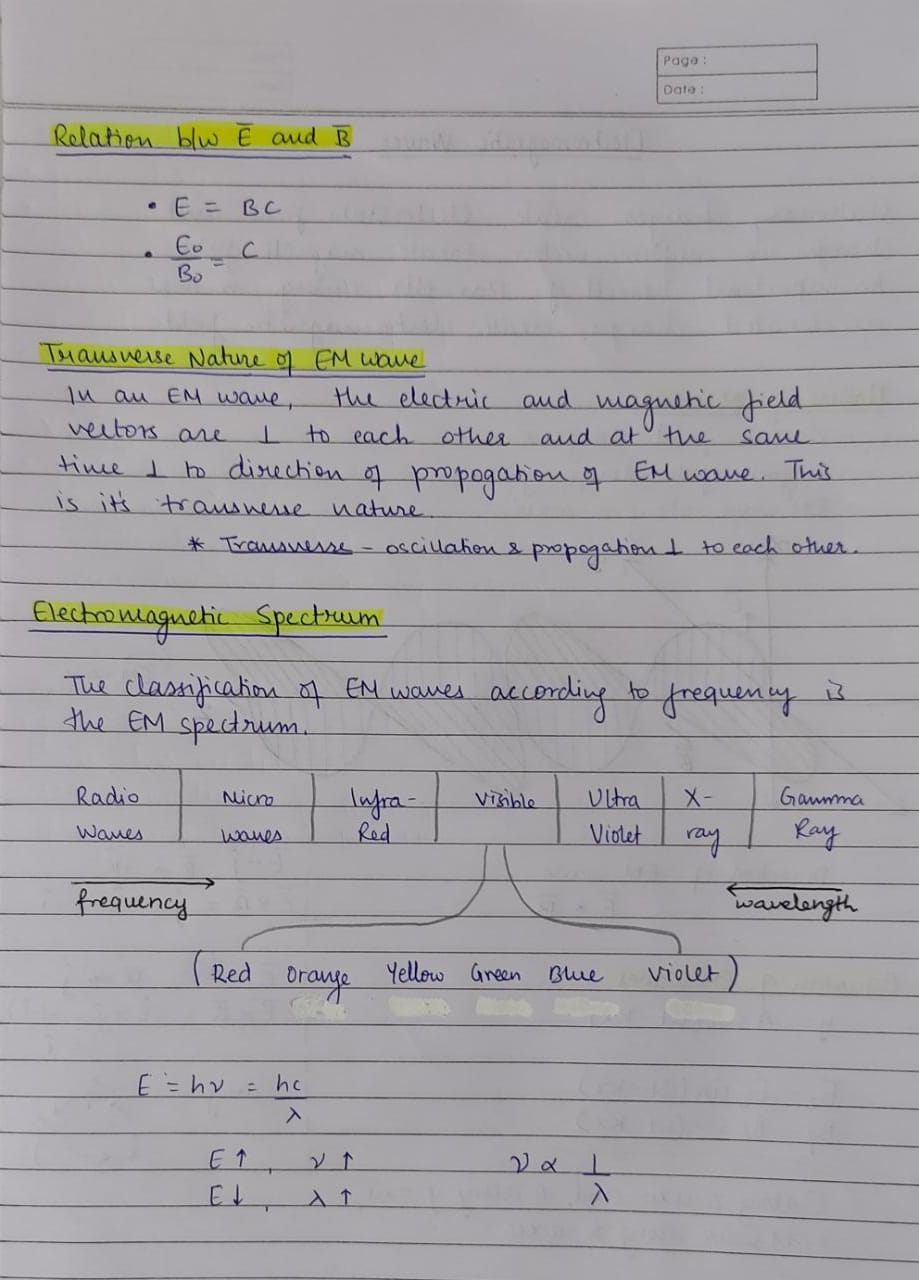 Page :
Date :
Relation b/w E̅ and B̅
• E = BC
• E₀/B₀ = C
Transverse Nature of EM wave
In an EM wave, the electric and magnetic field
vectors are ⊥ to each other and at the same
time ⊥ to direction of propogation of EM wave. This
is it's transverse nature.
* Transverse - oscillation & propogation ⊥ to each other.
Electromagnetic Spectrum
The classification of EM waves according to frequency is
the EM spectrum.
Radio Micro Infra- Visible Ultra X- Gamma
Waves waves Red Violet ray Ray
→ ←
frequency wavelength
(Red Orange Yellow Green Blue Violet)
E = hν = hc/λ
E↑, ν↑ ν ∝ 1/λ
E↓, λ↑